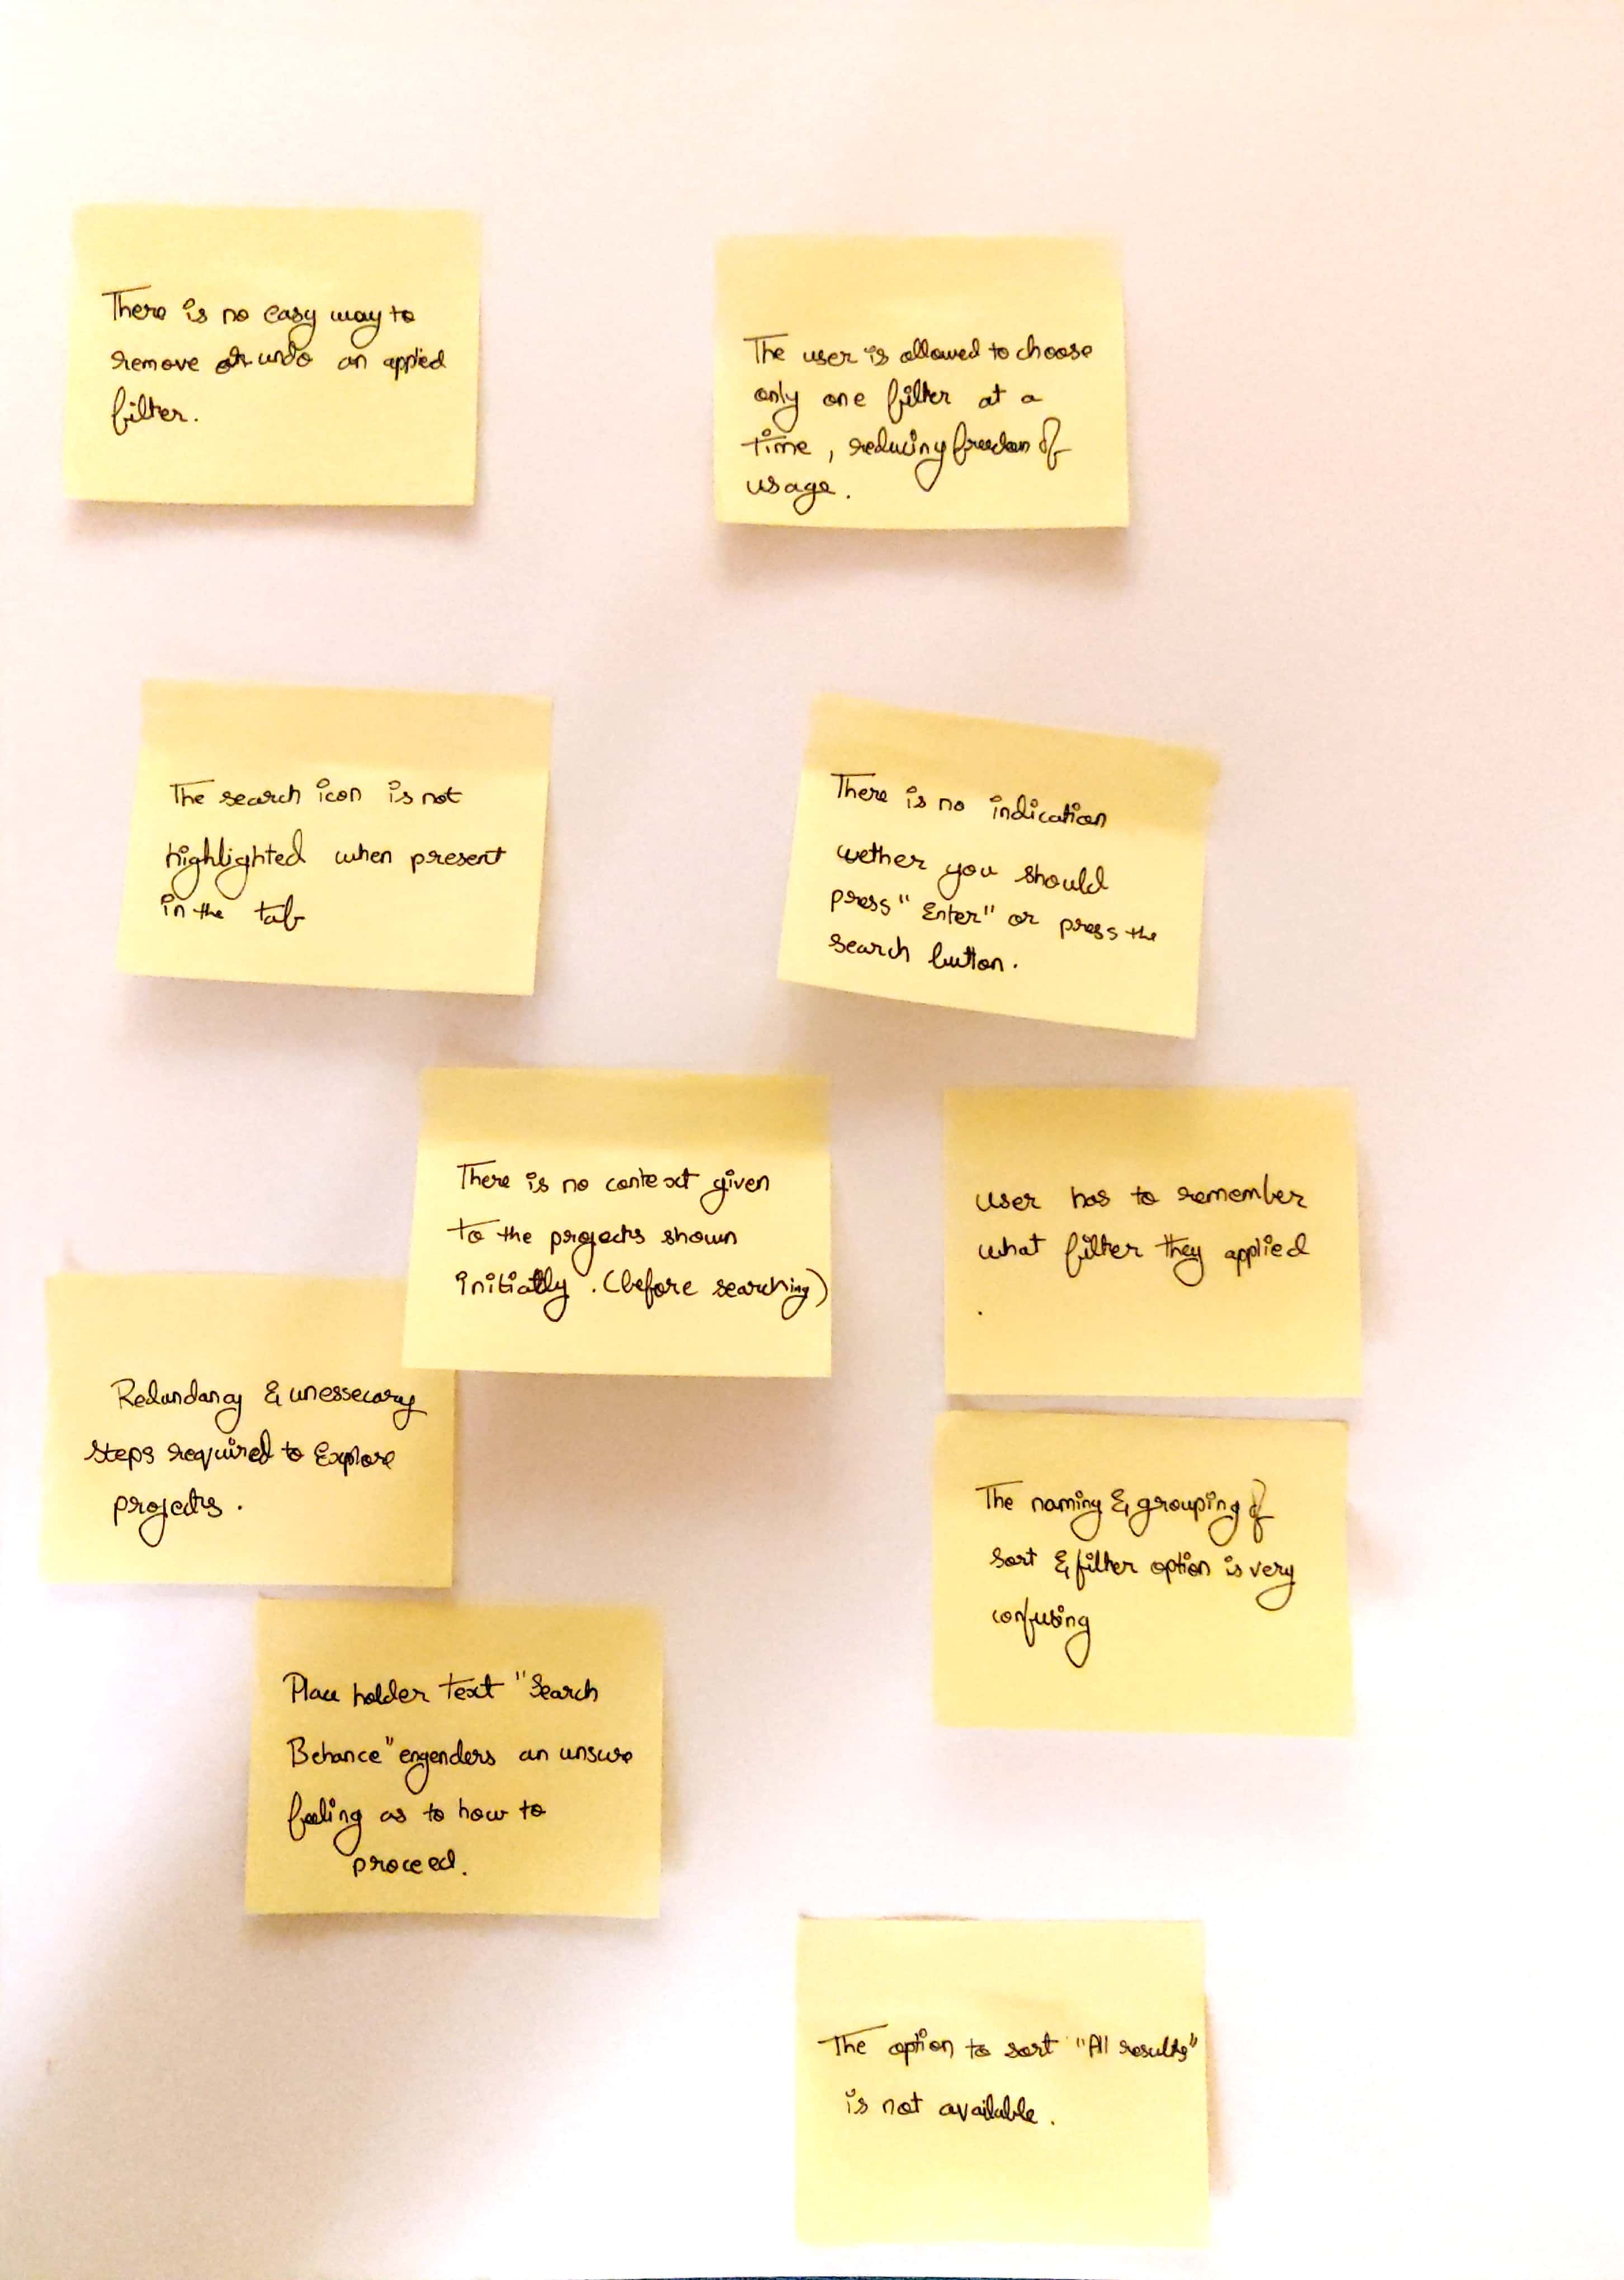 There is no easy way to
remove or undo an applied
filter.
The user is allowed to choose
only one filter at a
time, reducing freedom of
usage.
The search icon is not
highlighted when present
in the tab
There is no indication
wether you should
press "Enter" or press the
search button.
There is no context given
to the projects shown
initially. (before searching)
User has to remember
what filter they applied
.
Redundancy & unessecary
steps required to Explore
projects.
The naming & grouping of
sort & filter option is very
confusing
Place holder text "Search
Behance" engenders an unsure
feeling as to how to
proceed.
The option to sort "All results"
is not available.